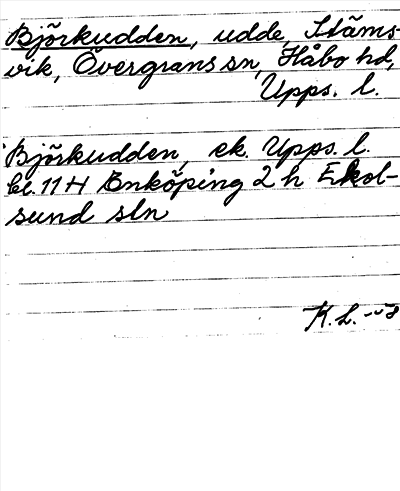 Björkudden, udde, Stäms-
vik, Övergrans sn, Håbo hd,
Upps. l.
Björkudden, ek. Upps. l.
bl. 11 H Enköping 2 h Ekol-
sund sln
K. L. -